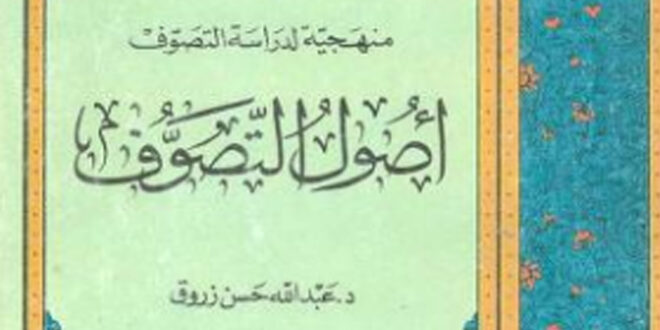 منهجية لدراسة التصوّف
أصُولُ التّصَوُّف
د. عبد الله حسن زروق